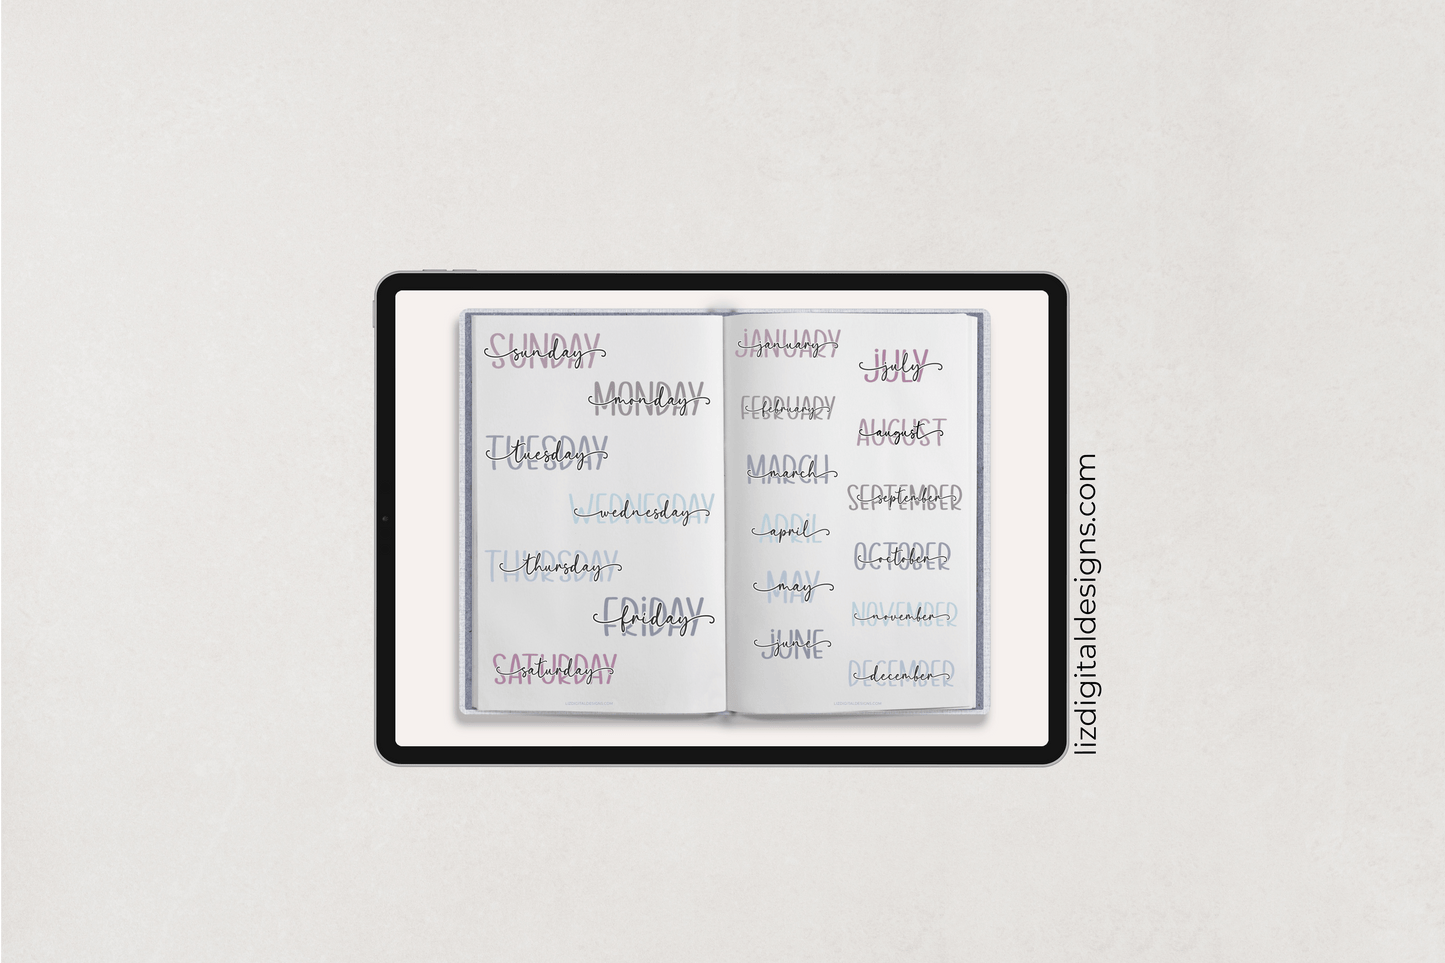 SUNDAY
sunday
MONDAY
monday
TUESDAY
tuesday
WEDNESDAY
wednesday
THURSDAY
thursday
FRiDAY
friday
SATURDAY
saturday
LIZDIGITALDESIGNS.COM
jANUARY
january
FEBRUARY
february
MARCH
march
APRiL
april
MAY
may
jUNE
june
jULY
july
AUGUST
august
SEPTEMBER
september
OCTOBER
october
NOVEMBER
november
DECEMBER
december
LIZDIGITALDESIGNS.COM
lizdigitaldesigns.com